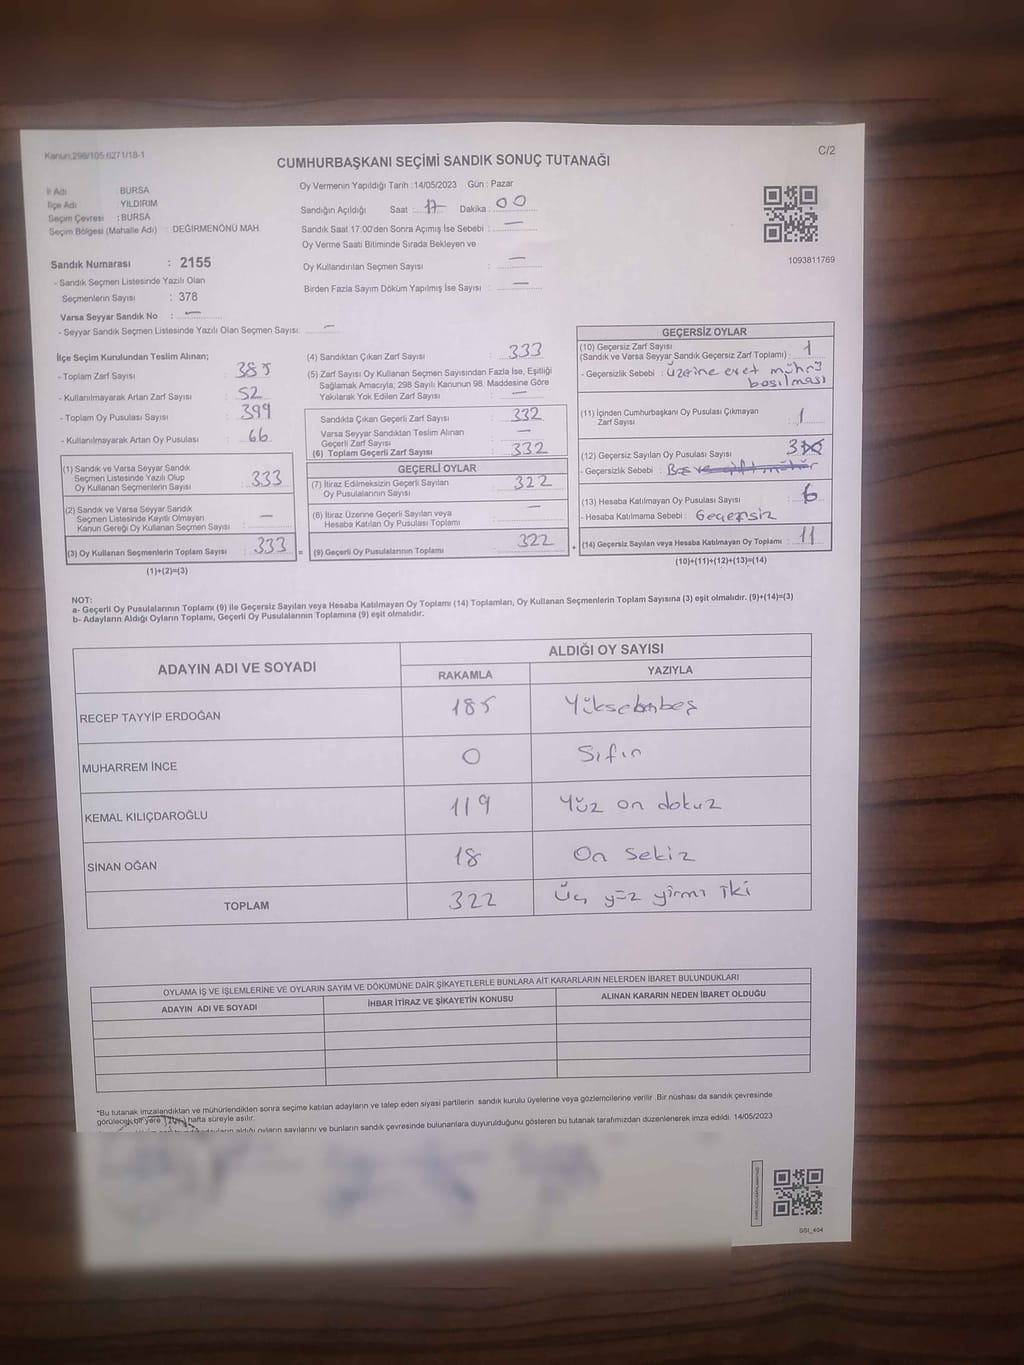 Kanun:298/105,6271/18-1
C/2
CUMHURBAŞKANI SEÇİMİ SANDIK SONUÇ TUTANAĞI
İl Adı BURSA
İlçe Adı YILDIRIM
Seçim Çevresi : BURSA
Seçim Bölgesi (Mahalle Adı) : DEĞİRMENÖNÜ MAH.
Sandık Numarası : 2155
- Sandık Seçmen Listesinde Yazılı Olan
Seçmenlerin Sayısı : 378
Varsa Seyyar Sandık No : —
- Seyyar Sandık Seçmen Listesinde Yazılı Olan Seçmen Sayısı: —
Oy Vermenin Yapıldığı Tarih :14/05/2023 Gün : Pazar
Sandığın Açıldığı Saat : 17 Dakika : 00
Sandık Saat 17:00'den Sonra Açımış İse Sebebi : —
Oy Verme Saati Bitiminde Sırada Bekleyen ve
Oy Kullandırılan Seçmen Sayısı : —
Birden Fazla Sayım Döküm Yapılmış İse Sayısı : —
1093811769
İlçe Seçim Kurulundan Teslim Alınan;
- Toplam Zarf Sayısı : 385
- Kullanılmayarak Artan Zarf Sayısı : 52
- Toplam Oy Pusulası Sayısı : 399
- Kullanılmayarak Artan Oy Pusulası : 66
(1) Sandık ve Varsa Seyyar Sandık
Seçmen Listesinde Yazılı Olup
Oy Kullanan Seçmenlerin Sayısı : 333
(2) Sandık ve Varsa Seyyar Sandık
Seçmen Listesinde Kayıtlı Olmayan
Kanun Gereği Oy Kullanan Seçmen Sayısı : —
(3) Oy Kullanan Seçmenlerin Toplam Sayısı : 333 =
(1)+(2)=(3)
(4) Sandıktan Çıkan Zarf Sayısı : 333
(5) Zarf Sayısı Oy Kullanan Seçmen Sayısından Fazla İse, Eşitliği
Sağlamak Amacıyla; 298 Sayılı Kanunun 98. Maddesine Göre
Yakılarak Yok Edilen Zarf Sayısı : —
Sandıkta Çıkan Geçerli Zarf Sayısı : 332
Varsa Seyyar Sandıktan Teslim Alınan
Geçerli Zarf Sayısı : —
(6) Toplam Geçerli Zarf Sayısı : 332
GEÇERLİ OYLAR
(7) İtiraz Edilmeksizin Geçerli Sayılan
Oy Pusulalarının Sayısı : 322
(8) İtiraz Üzerine Geçerli Sayılan veya
Hesaba Katılan Oy Pusulası Toplamı : —
(9) Geçerli Oy Pusulalarının Toplamı : 322 +
GEÇERSİZ OYLAR
(10) Geçersiz Zarf Sayısı
(Sandık ve Varsa Seyyar Sandık Geçersiz Zarf Toplamı) : 1
- Geçersizlik Sebebi : Üzerine evet mührü
basılması
(11) İçinden Cumhurbaşkanı Oy Pusulası Çıkmayan
Zarf Sayısı : 1
(12) Geçersiz Sayılan Oy Pusulası Sayısı : 3
- Geçersizlik Sebebi :
(13) Hesaba Katılmayan Oy Pusulası Sayısı : 6
- Hesaba Katılmama Sebebi : Geçersiz
(14) Geçersiz Sayılan veya Hesaba Katılmayan Oy Toplamı : 11
(10)+(11)+(12)+(13)=(14)
NOT:
a- Geçerli Oy Pusulalarının Toplamı (9) ile Geçersiz Sayılan veya Hesaba Katılmayan Oy Toplamı (14) Toplamları, Oy Kullanan Seçmenlerin Toplam Sayısına (3) eşit olmalıdır. (9)+(14)=(3)
b- Adayların Aldığı Oyların Toplamı, Geçerli Oy Pusulalarının Toplamına (9) eşit olmalıdır.
ADAYIN ADI VE SOYADI ALDIĞI OY SAYISI
RAKAMLA YAZIYLA
RECEP TAYYİP ERDOĞAN 185 Yüksebnbeş
MUHARREM İNCE 0 Sıfır
KEMAL KILIÇDAROĞLU 119 Yüz on dokuz
SİNAN OĞAN 18 On Sekiz
TOPLAM 322 Üç yüz yirmi iki
OYLAMA İŞ VE İŞLEMLERİNE VE OYLARIN SAYIM VE DÖKÜMÜNE DAİR ŞİKAYETLERLE BUNLARA AİT KARARLARIN NELERDEN İBARET BULUNDUKLARI
ADAYIN ADI VE SOYADI İHBAR İTİRAZ VE ŞİKAYETİN KONUSU ALINAN KARARIN NEDEN İBARET OLDUĞU
*Bu tutanak imzalandıktan ve mühürlendikten sonra seçime katılan adayların ve talep eden siyasi partilerin sandık kurulu üyelerine veya gözlemcilerine verilir .Bir nüshası da sandık çevresinde
görülecek bir yere hafta süreyle asılır.
aldığı oyların sayılarını ve bunların sandık çevresinde bulunanlara duyurulduğunu gösteren bu tutanak tarafımızdan düzenlenerek imza edildi. 14/05/2023
SSI_404